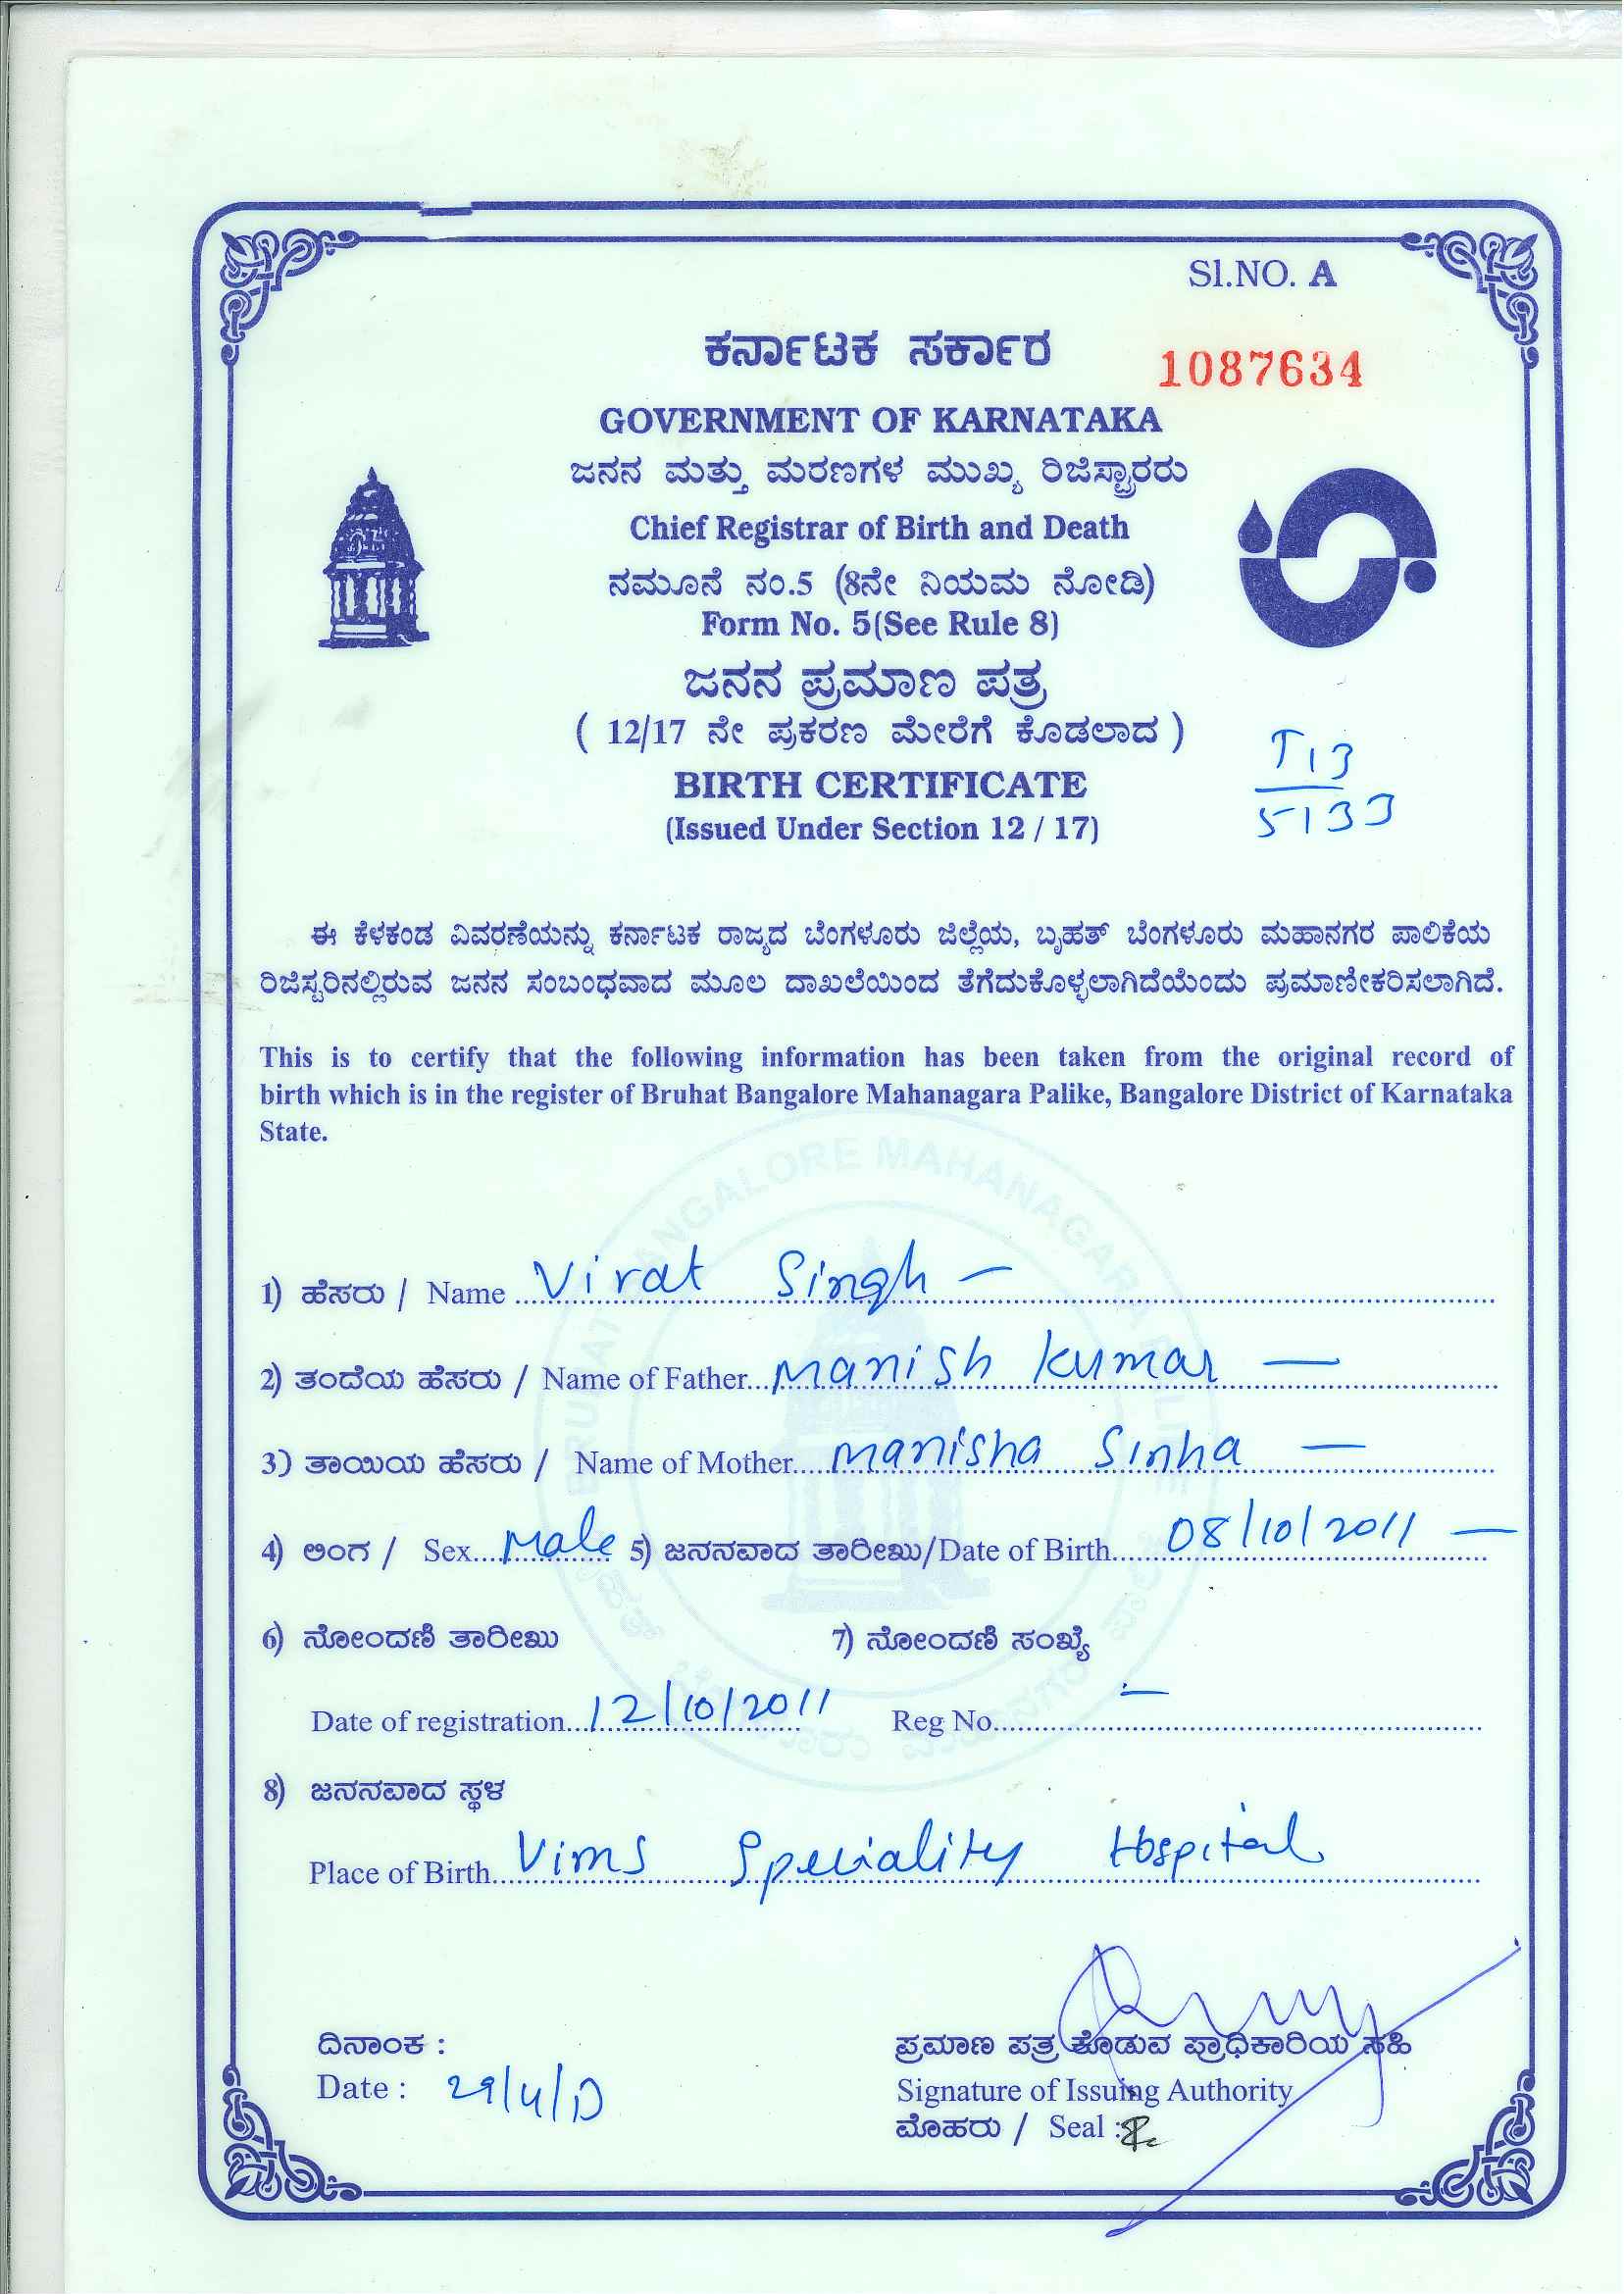 Sl.NO. A
ಕರ್ನಾಟಕ ಸರ್ಕಾರ
1087634
GOVERNMENT OF KARNATAKA
ಜನನ ಮತ್ತು ಮರಣಗಳ ಮುಖ್ಯ ರಿಜಿಸ್ಟ್ರಾರರು
Chief Registrar of Birth and Death
ನಮೂನೆ ನಂ.5 (8ನೇ ನಿಯಮ ನೋಡಿ)
Form No. 5(See Rule 8)
ಜನನ ಪ್ರಮಾಣ ಪತ್ರ
( 12/17 ನೇ ಪ್ರಕರಣ ಮೇರೆಗೆ ಕೊಡಲಾದ )
BIRTH CERTIFICATE
(Issued Under Section 12 / 17)
T13
5133
ಈ ಕೆಳಕಂಡ ವಿವರಣೆಯನ್ನು ಕರ್ನಾಟಕ ರಾಜ್ಯದ ಬೆಂಗಳೂರು ಜಿಲ್ಲೆಯ, ಬೃಹತ್ ಬೆಂಗಳೂರು ಮಹಾನಗರ ಪಾಲಿಕೆಯ
ರಿಜಿಸ್ಟರಿನಲ್ಲಿರುವ ಜನನ ಸಂಬಂಧವಾದ ಮೂಲ ದಾಖಲೆಯಿಂದ ತೆಗೆದುಕೊಳ್ಳಲಾಗಿದೆಯೆಂದು ಪ್ರಮಾಣೀಕರಿಸಲಾಗಿದೆ.
This is to certify that the following information has been taken from the original record of
birth which is in the register of Bruhat Bangalore Mahanagara Palike, Bangalore District of Karnataka
State.
1) ಹೆಸರು / Name Virat Singh –
2) ತಂದೆಯ ಹೆಸರು / Name of Father... Manish Kumar —
3) ತಾಯಿಯ ಹೆಸರು / Name of Mother.... Manisha Sinha —
4) ಲಿಂಗ / Sex.... Male 5) ಜನನವಾದ ತಾರೀಖು/Date of Birth...... 08/10/2011 —
6) ನೋಂದಣಿ ತಾರೀಖು 7) ನೋಂದಣಿ ಸಂಖ್ಯೆ
Date of registration... 12/10/2011 Reg No.... —
8) ಜನನವಾದ ಸ್ಥಳ
Place of Birth.... Vims Speciality Hospital
ದಿನಾಂಕ :
Date : 29/4/13
ಪ್ರಮಾಣ ಪತ್ರ ಕೊಡುವ ಪ್ರಾಧಿಕಾರಿಯ ಸಹಿ
Signature of Issuing Authority
ಮೊಹರು / Seal :